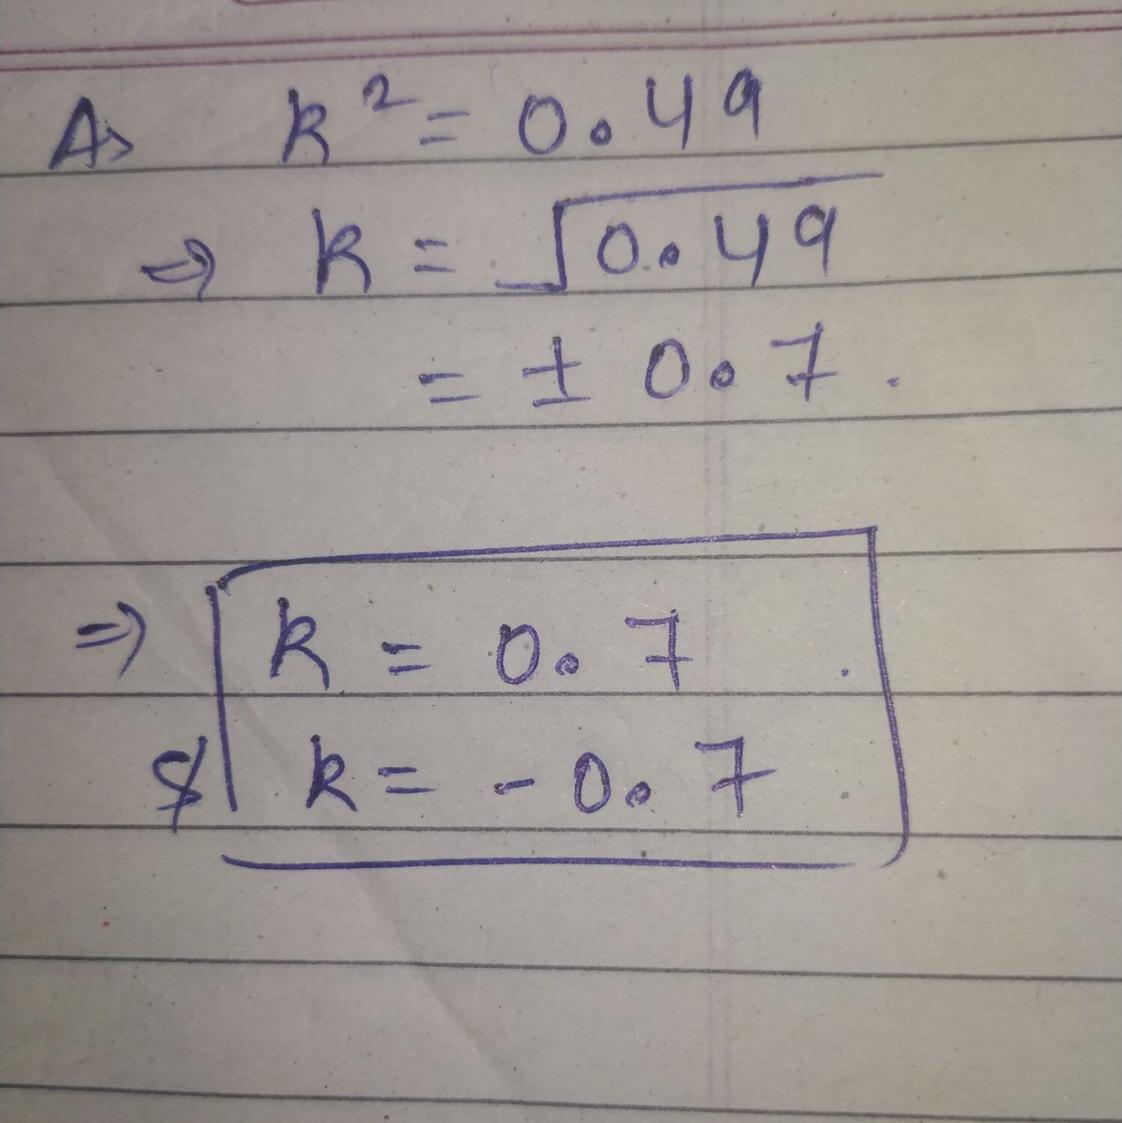 As k² = 0.49
⇒ k = √0.49
= ± 0.7.
⇒ k = 0.7
& k = -0.7